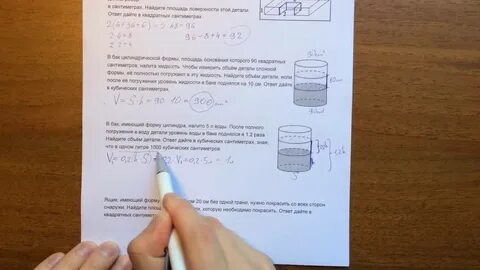 в сантиметрах. Найдите площадь поверхности этой детали
Ответ дайте в квадратных сантиметрах.
96-8+4=92
В бак цилиндрической формы, площадь основания которого 90 квадратных
сантиметров, налита жидкость. Чтобы измерить объём детали сложной
формы, её полностью погружают в эту жидкость. Найдите объём детали, если
после её погружения уровень жидкости в баке поднялся на 10 см. Ответ дайте
в кубических сантиметрах.
V=S·h=90·10=900
10см
В бак, имеющий форму цилиндра, налито 5 л воды. После полного
погружения в воду детали уровень воды в баке поднялся в 1,2 раза.
Найдите объём детали. Ответ дайте в кубических сантиметрах, зная,
что в одном литре 1000 кубических сантиметров.
V=0,2h·S=0,2·V₁=0,2·5л=1л
1,2h
S
Ящик, имеющий форму
20 см без одной грани, нужно покрасить со всех сторон
снаружи. Найдите площадь
которую необходимо покрасить. Ответ дайте
в квадратных сантиметрах.